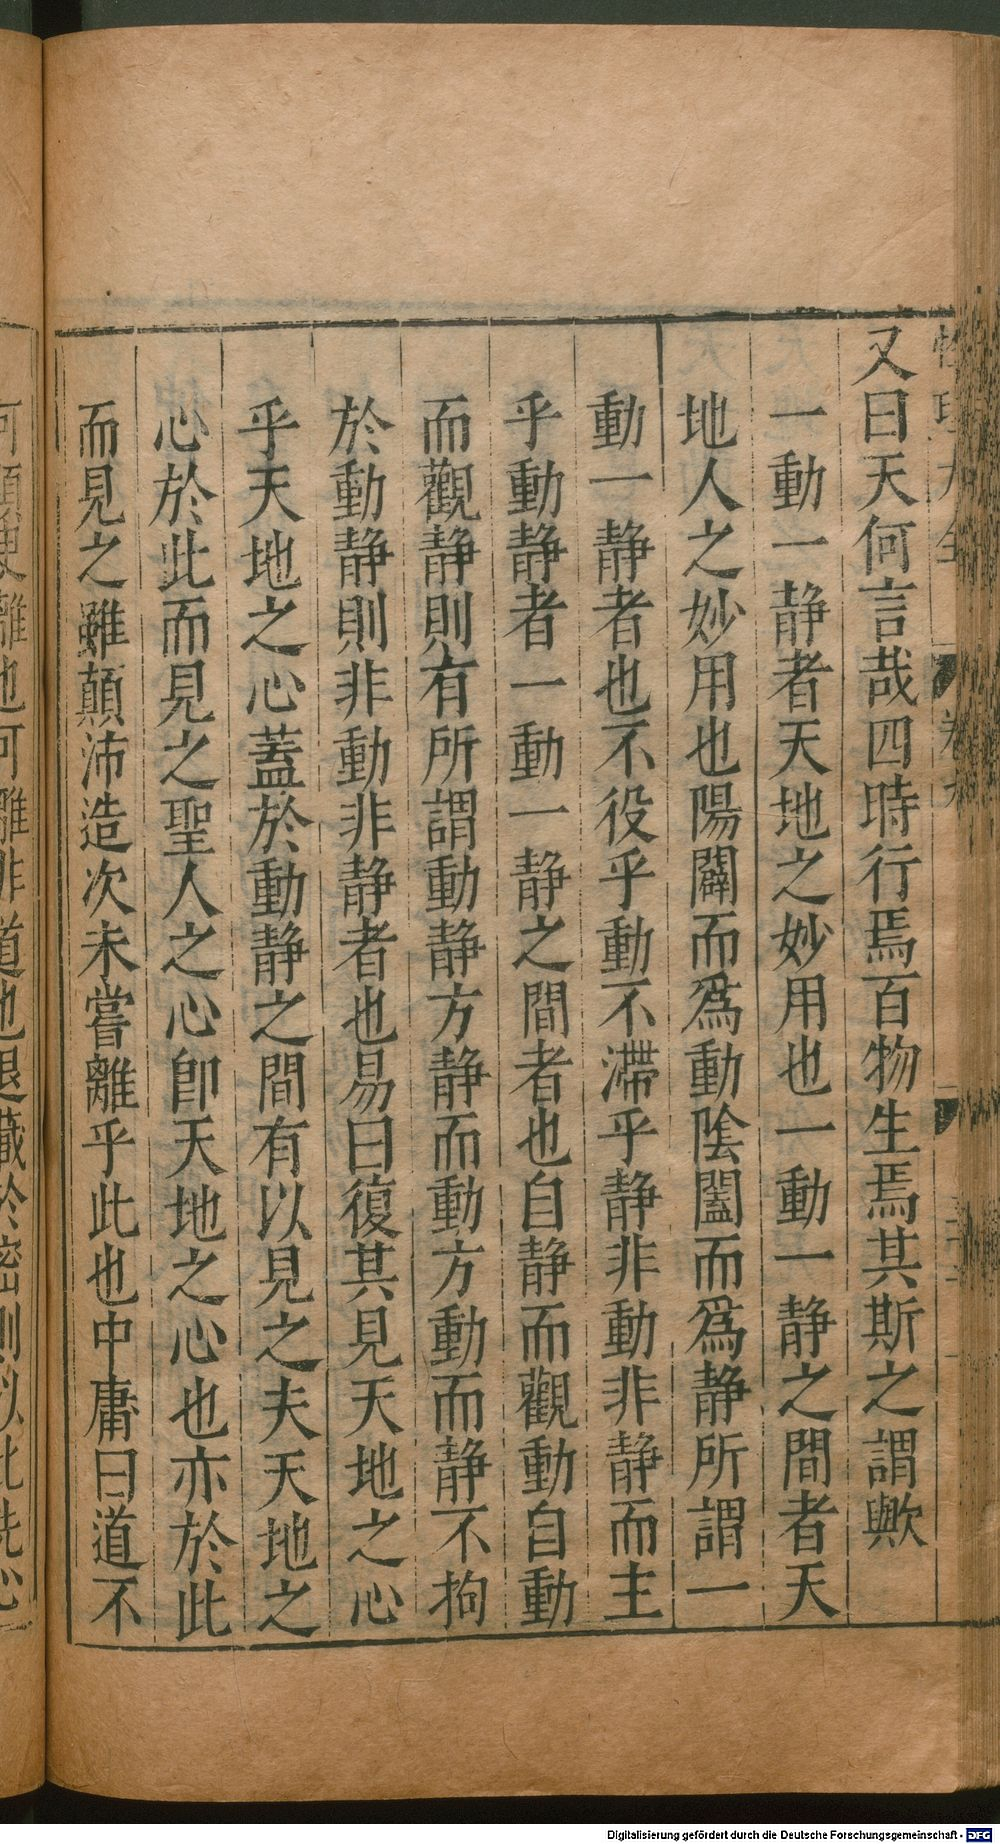 又曰天何言哉四時行焉百物生焉其斯之謂歟
一動一静者天地之妙用也一動一静之間者天
地人之妙用也陽闢而爲動陰闔而爲静所謂一
動一静者也不役乎動不滯乎静非動非静而主
乎動静者一動一静之間者也自静而觀動自動
而觀静則有所謂動静方静而動方動而静不拘
於動静則非動非静者也易曰復其見天地之心
乎天地之心蓋於動静之間有以見之夫天地之
心於此而見之聖人之心卽天地之心也亦於此
而見之雖顛沛造次未嘗離乎此也中庸曰道不
離也可離非道也退藏於密則以此洗心
Digitalisierung gefördert durch die Deutsche Forschungsgemeinschaft - DFG